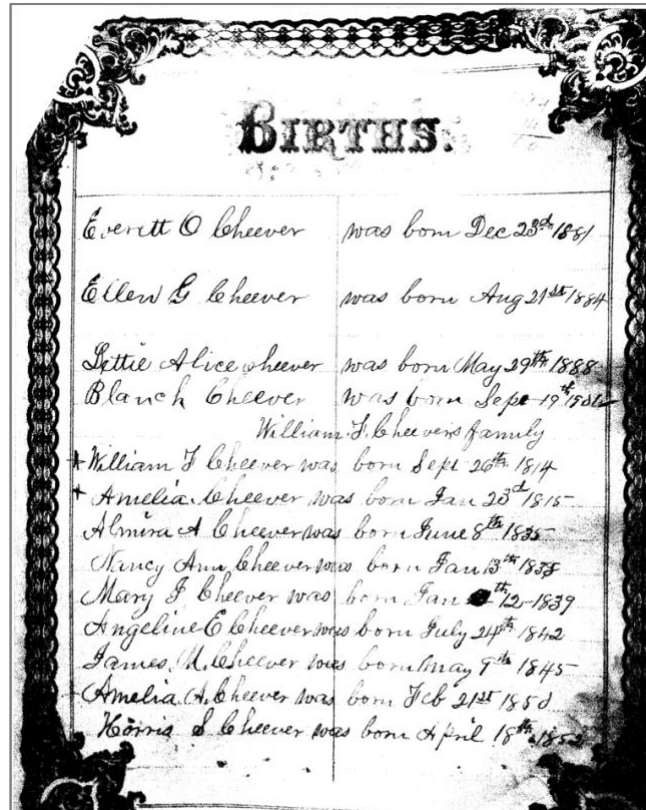 BIRTHS.
Everitt O Cheever was born Dec 23rd 1881
Ellen G Cheever was born Aug 21st 1884
Lettie Alice Cheever was born May 29th 1888
Blanch Cheever was born Sept 19th
William F. Cheevers family
+ William F Cheever was born Sept 26th 1814
+ Amelia Cheever was born Jan 23d 1815
Almira A Cheever was born June 8th 1835
Nancy Ann Cheever was born Jan 13th 1838
Mary J Cheever was born Jan 12-1839
Angeline E Cheever was born July 24th 1842
James M. Cheever was born May 9th 1845
Amelia A. Cheever was born Feb 21st 1850
S Cheever was born April 18th 1852